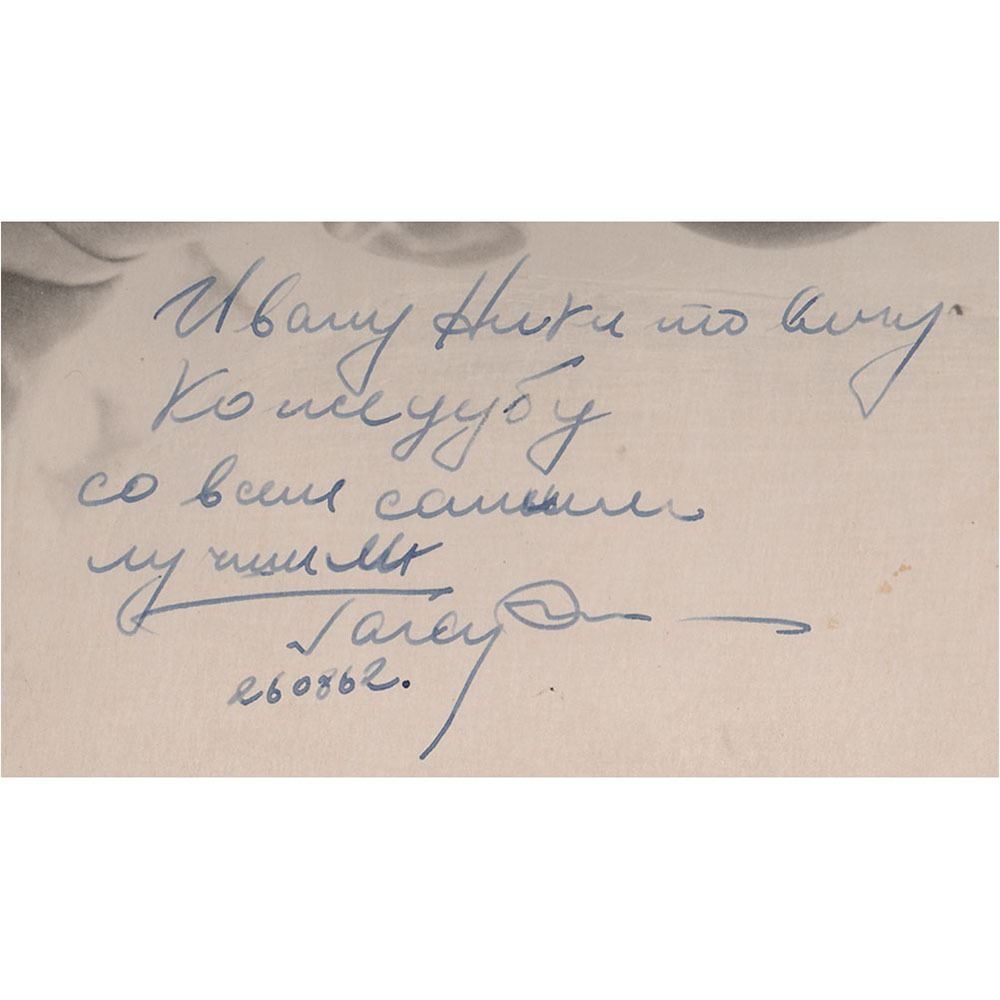 Ивану Никитовичу
Кожедубу
со всем самым
лучшим
Гагарин
260862.